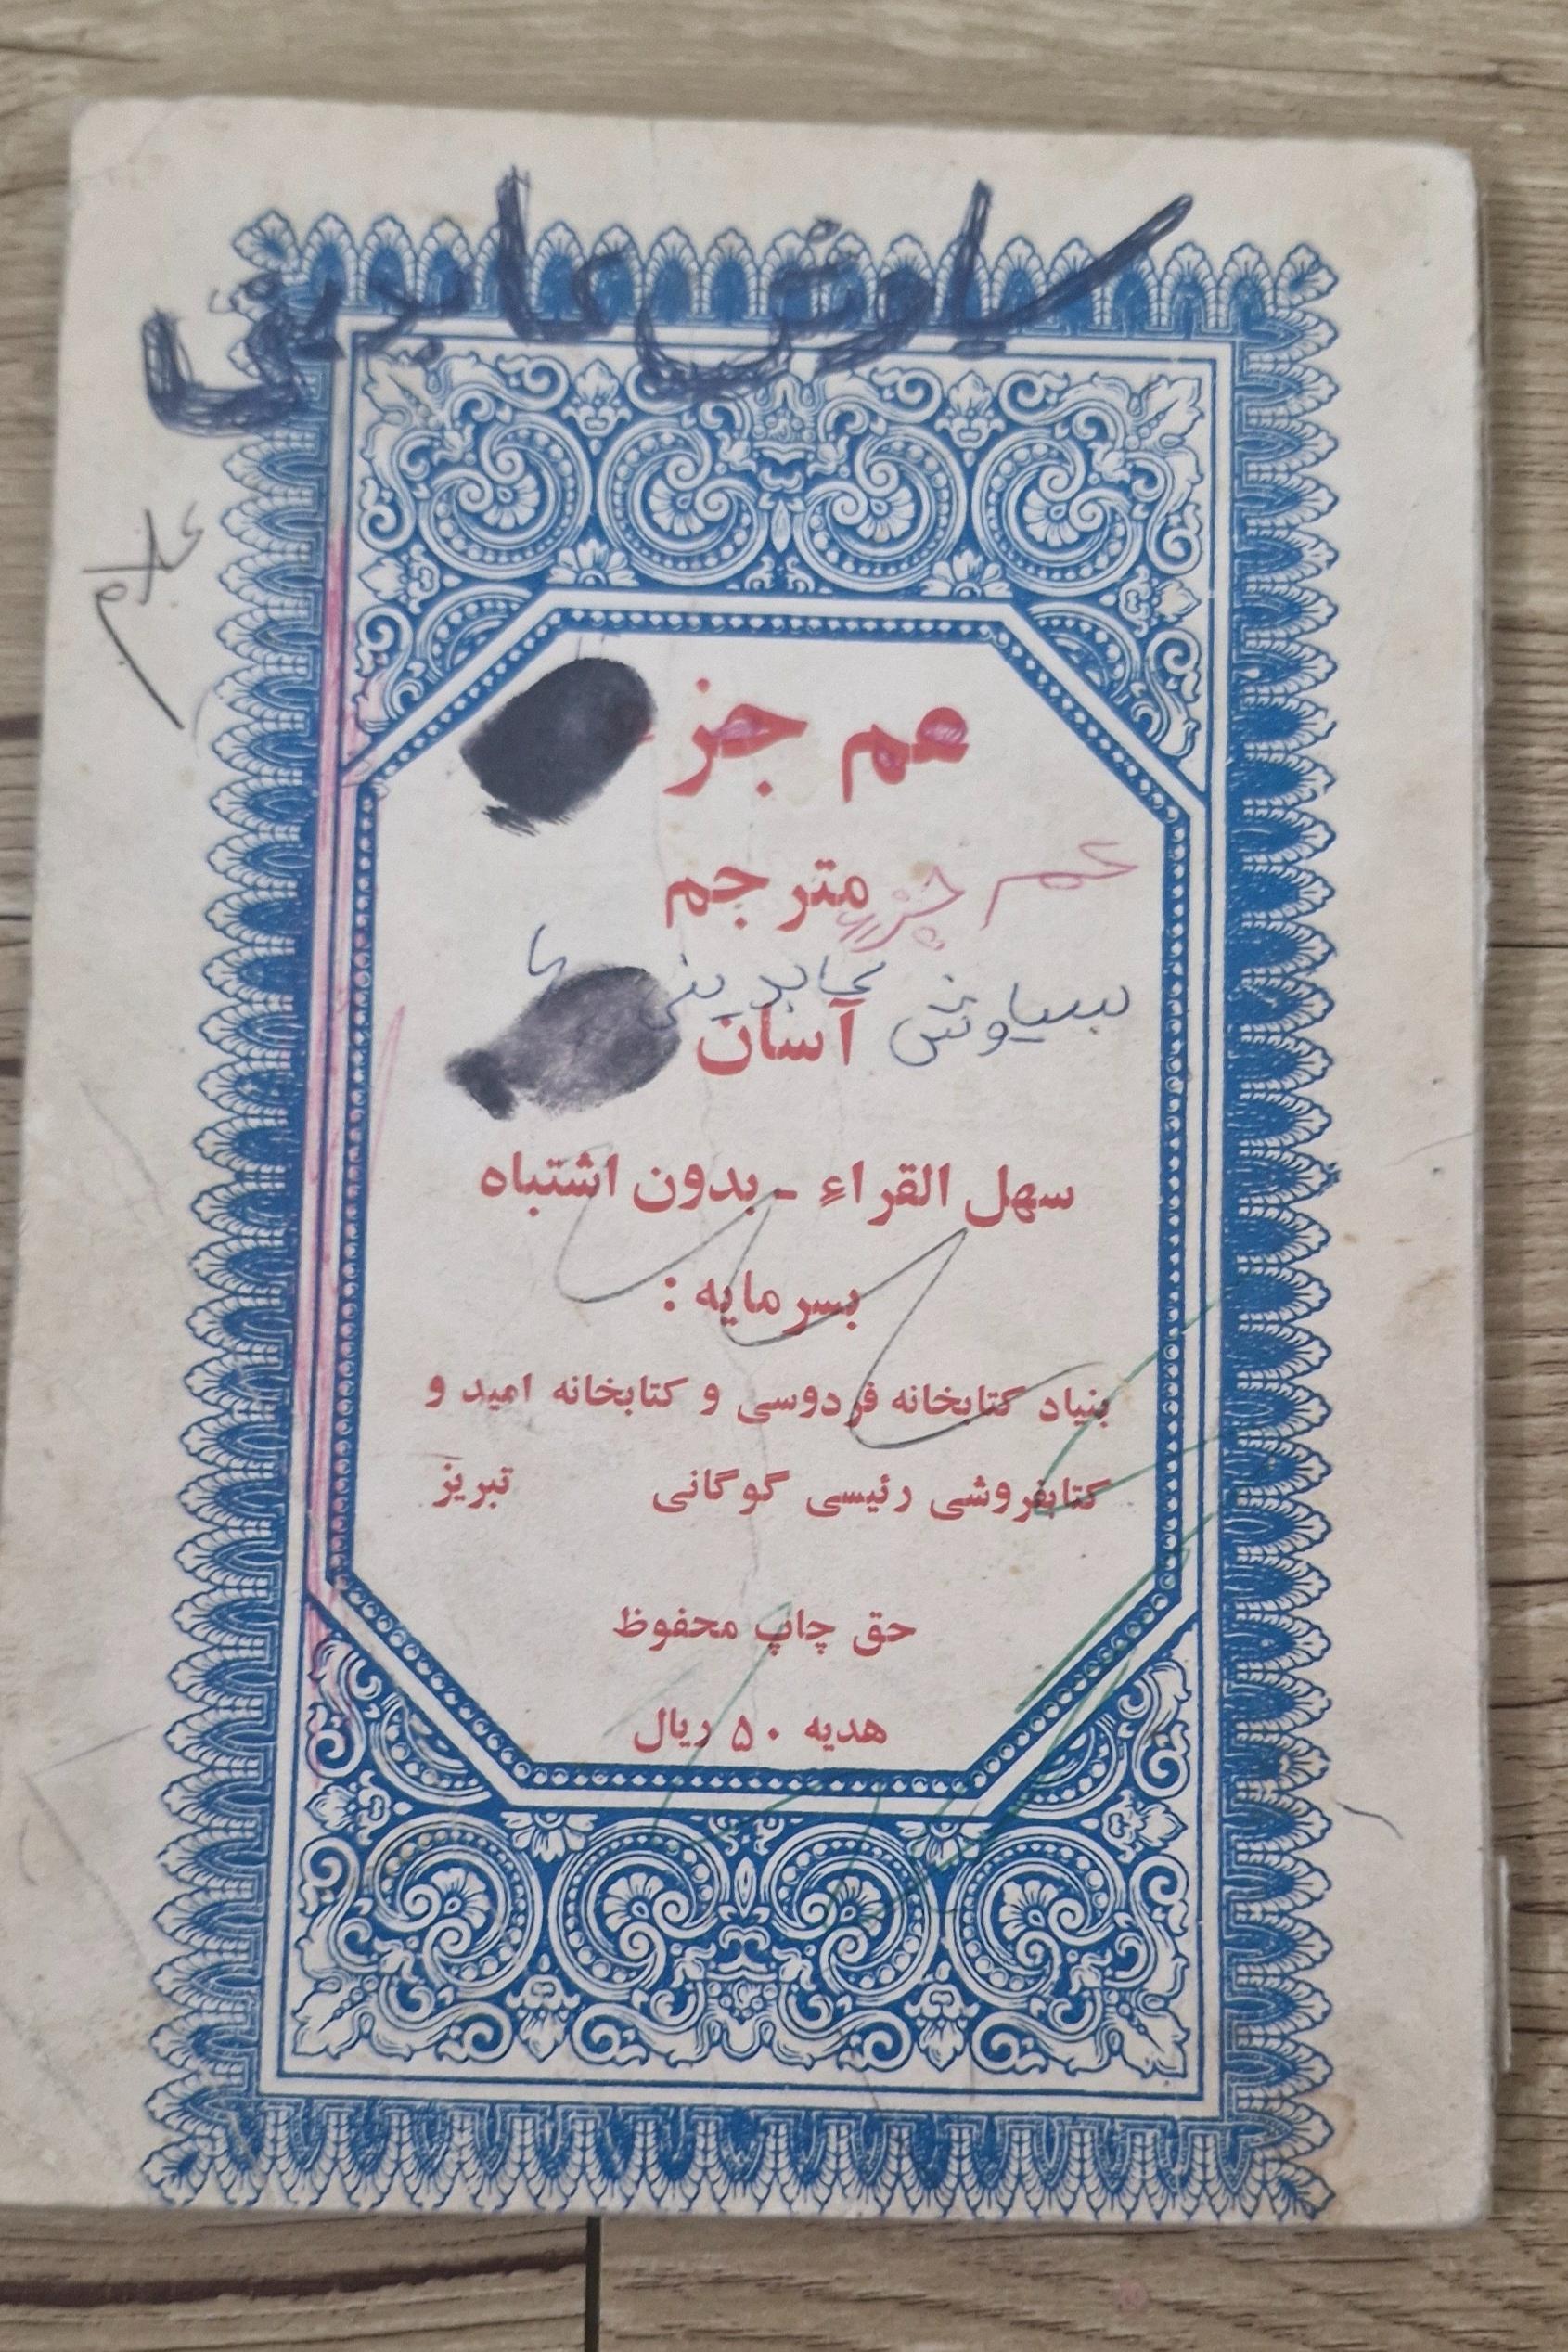 سیاوش عابدینی
عم جز
مترجم
عم جزء
سیاوش عابدینی
آسان
سهل القراءِ - بدون اشتباه
بسرمایه :
بنیاد کتابخانه فردوسی و کتابخانه امید و
کتابفروشی رئیسی گوگانی تبریز
حق چاپ محفوظ
هدیه ۵۰ ریال